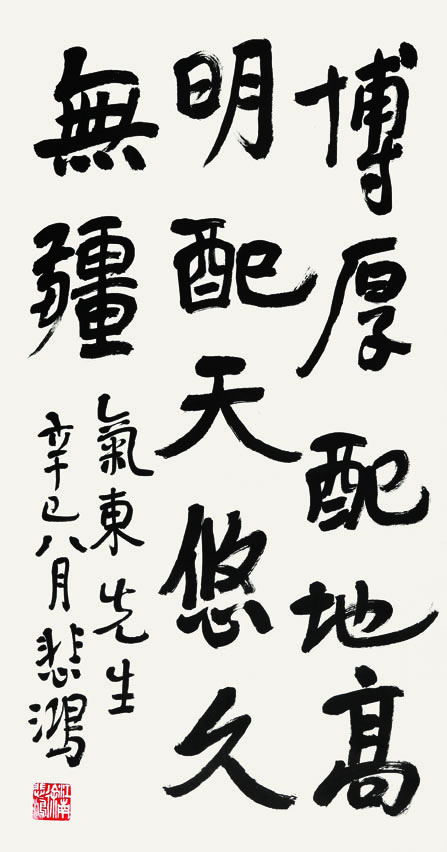 博厚配地高
明配天悠久
無疆
氣東先生
辛巳八月悲鴻
江南
徐悲鴻